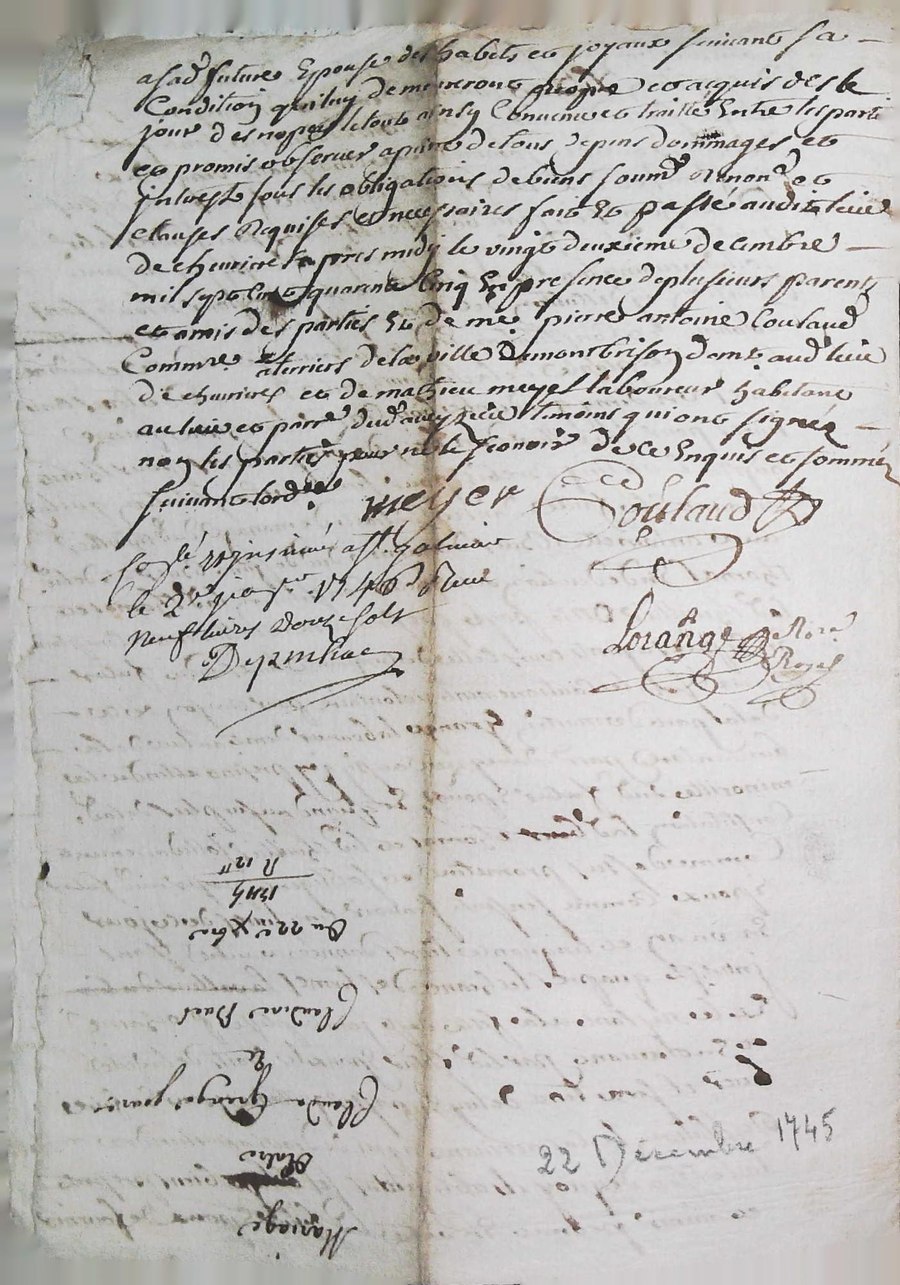 a sad future Epouse des habits et joyaux suivant sa
Condition qui luy demeureront propre et acquis des le
jour des nopces le tout ainsy Convenu et traitté Entre les parti
et promis observer a peine de tous depens dommages et
interest sous les obligations de biens soum renon et
clauses Requises et necessaires fait Et passé audit lieu
de chevrieres apres midy le vingt deuxieme decembre
mil sept cent quarante cinq En presence de plusieurs parents
et amis des parties Et de me pierre antoine Coulaud
Commre a terriers de la ville de montbrison demt aud lieu
de chevrieres et de mathieu meyer laboureur habitant
au lieu et parr dud temoins qui ont signéz
non les parties pour ne le scavoir de ce Enquis et sommez
suivant lord
meyer Coulaud
le 2e 1746
neuf livres douze sols
Lorange Nore
Royal
Mariage
Claude Grange
Et
Claudine
Du 22e xbre
1745
R 12
22 Décembre 1745